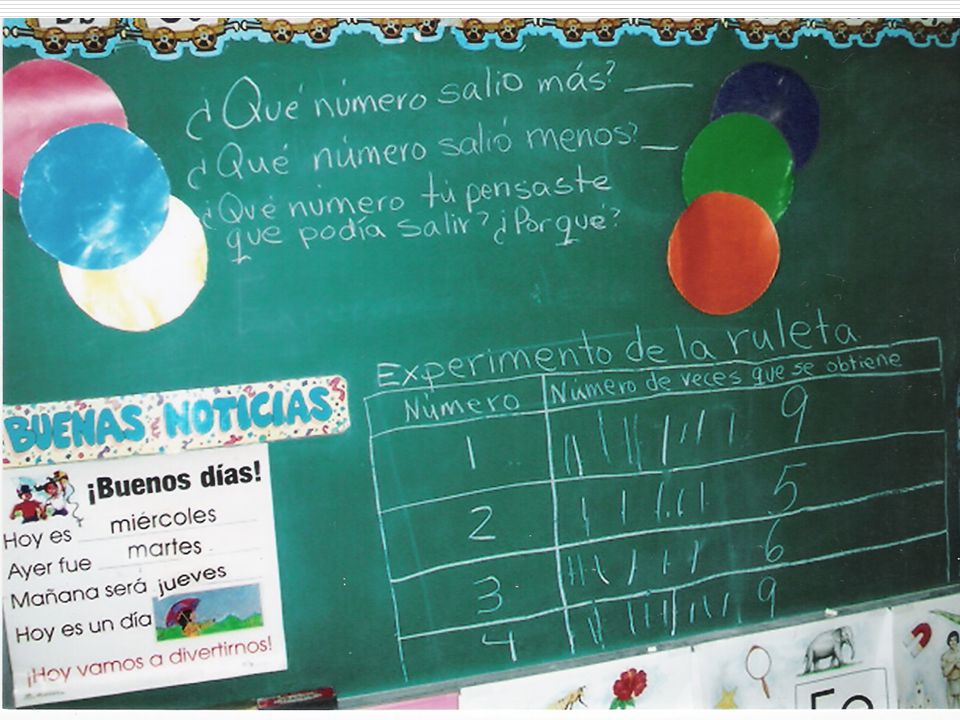 ¿Qué número salio más? __
¿Qué número salió menos? __
¿Qué número tú pensaste
que podía salir? ¿Por qué?
Experimento de la ruleta
Número Número de veces que se obtiene
1 9
2 5
3 6
4 9
BUENAS NOTICIAS
¡Buenos días!
Hoy es miércoles
Ayer fue martes
Mañana será jueves
Hoy es un día
¡Hoy vamos a divertirnos!